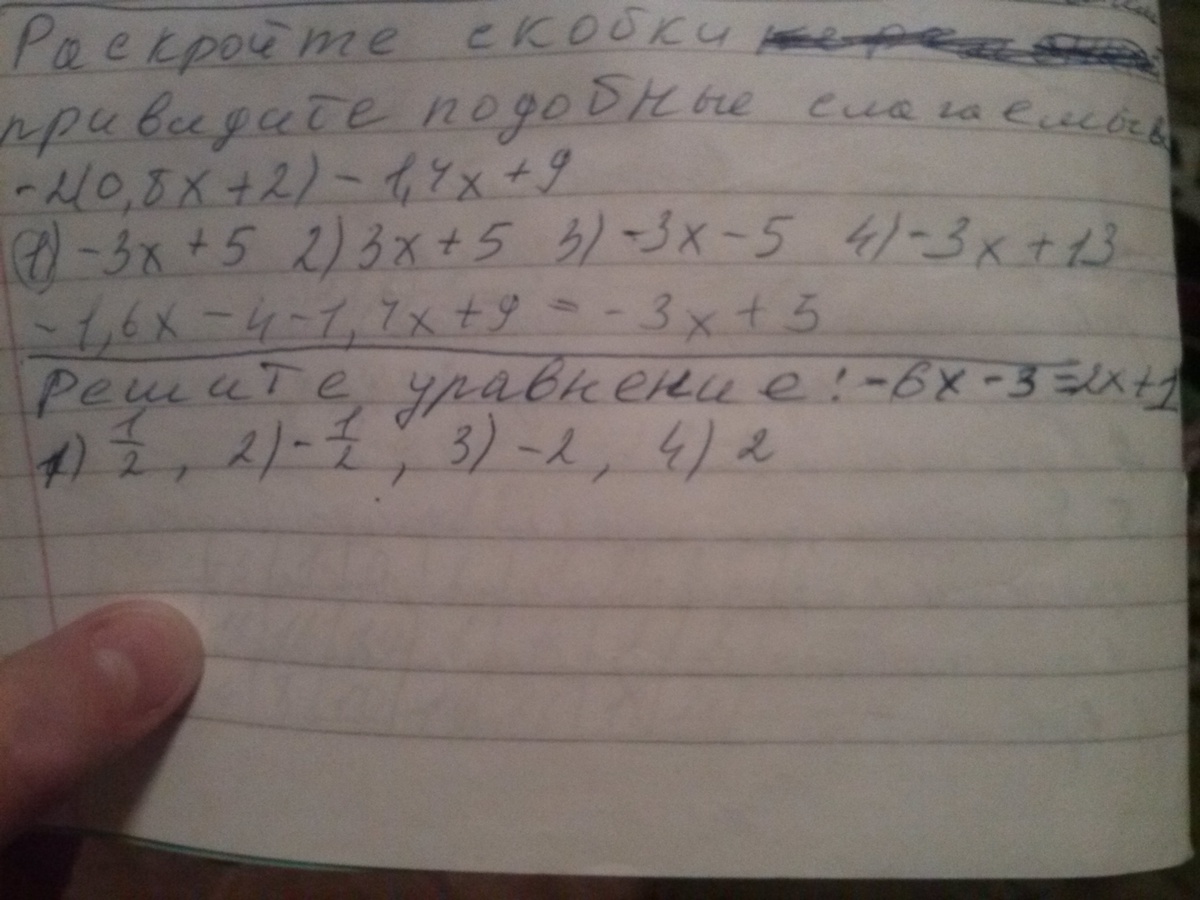 Раскройте скобки
привидите подобные слагаемые
-2(0,8x+2)-1,4x+9
1) -3x+5 2) 3x+5 3) -3x-5 4) -3x+13
-1,6x-4-1,4x+9 = -3x+5
Решите уравнение: -6x-3=2x+1
1) 1/2, 2) -1/2, 3) -2, 4) 2